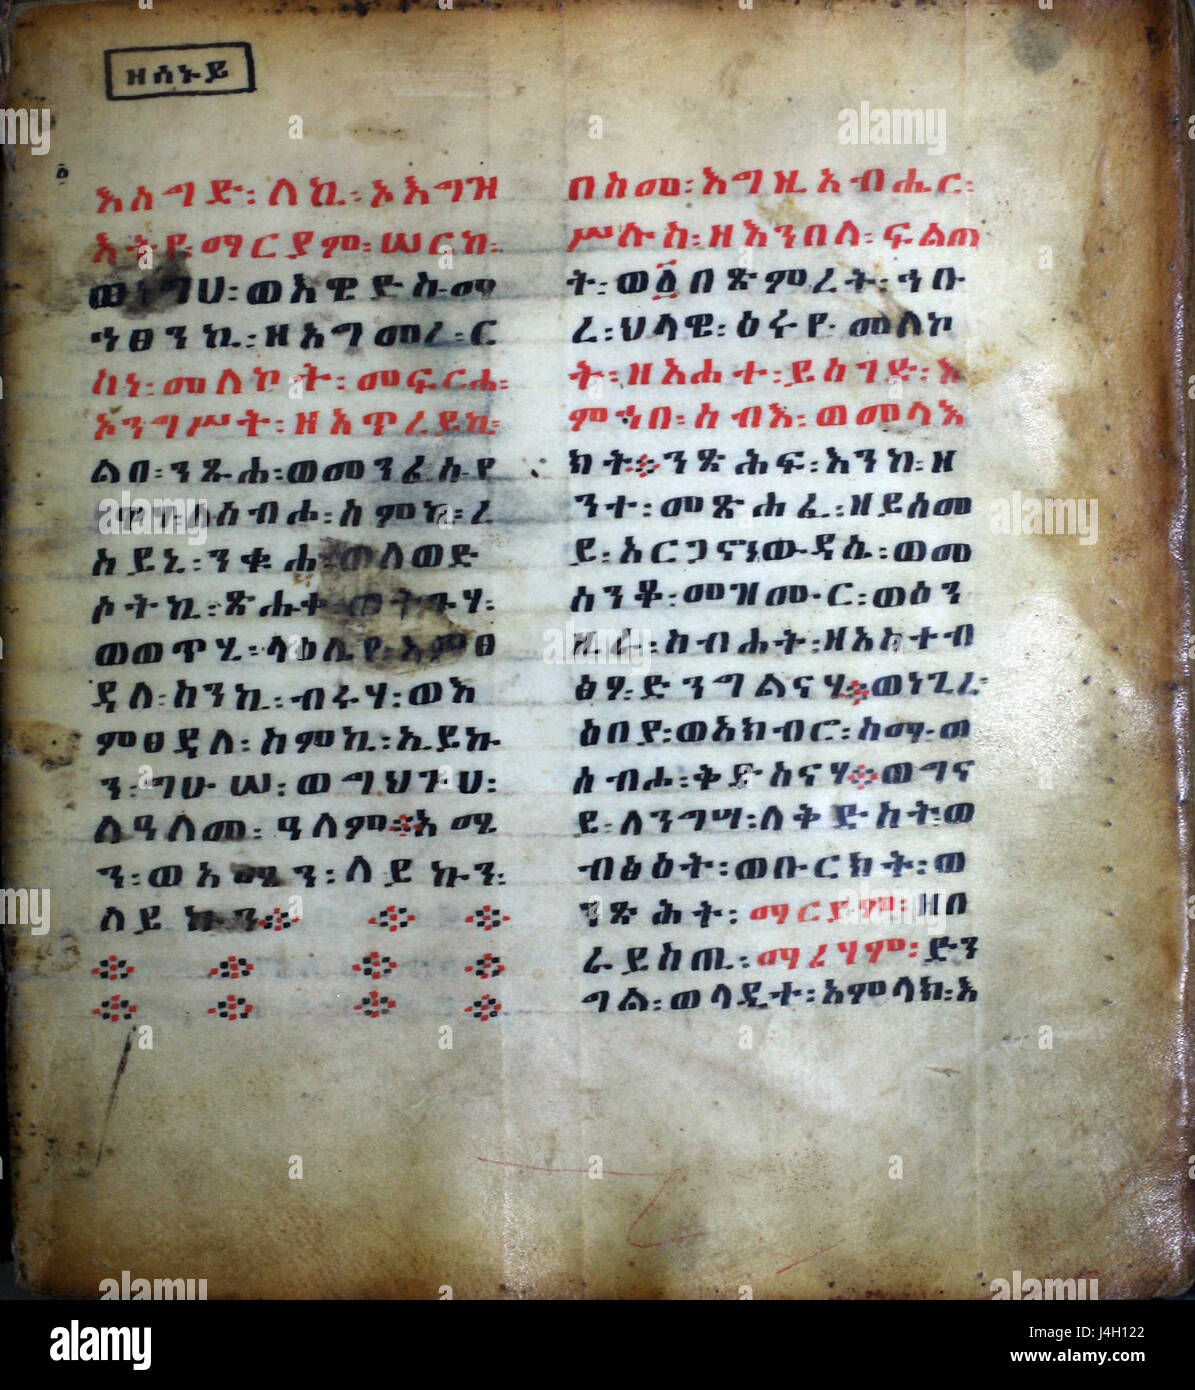 ዘሰኑይ
እሰግድ፡ለኪ፡ኦእግዝ
እትየ፡ማርያም፡ሠርከ፡
ወነግሀ፡ወእዌድሰ፡ማ
ኅፀንኪ፡ዘአግመረ፡ር
ስነ፡መለኮት፡መፍርሐ፡
ኦንግሥት፡ዘአጥረይኪ፡
ልበ፡ንጹሐ፡ወመንፈሰ፡የ
ዋህ፡ሰስብሖ፡ስምኪ፡ረ
ስይኒ፡ንቁሐ፡ወለወድ
ሶትኪ፡ጽሑቀ፡ወትጉሃ፡
ወወጥሂ፡ላዕሌየ፡አምፀ
ዳለ፡ከንኪ፡ብሩሃ፡ወእ
ምፀዳለ፡ስምኪ፡ኢይኩ
ን፡ግሁሠ፡ወግህጉሀ፡
ለዓለመ፡ዓለም፡አሜ
ን፡ወአሜን፡ለይኩን፡
ለይኩን፡
በስመ፡እግዚአብሔር፡
ሥሉስ፡ዘእንበለ፡ፍልጠ
ት፡ወ፩በጽምረት፡ኅቡ
ረ፡ህላዌ፡ዕሩየ፡መለኮ
ት፡ዘአሐተ፡ይሰገድ፡እ
ምኀበ፡ሰብእ፡ወመላእ
ክት፡ንጽሕፍ፡እንከ፡ዘ
ንተ፡መጽሐፈ፡ዘይሰመ
ይ፡አርጋኖነ፡ውዳሴ፡ወመ
ሰንቆ፡መዝሙር፡ወዕን
ዚራ፡ስብሐት፡ዘአስተብ
ፅዖ፡ድንግልናሃ፡ወነጊረ፡
ዕበያ፡ወአክብሮ፡ስማ፡ወ
ሰብሖ፡ቅድስናሃ፡ወግና
ይ፡ለንግሣ፡ለቅድስት፡ወ
ብፅዕት፡ወቡርክት፡ወ
ንጽሕት፡ማርያም፡ዘበ
ራይስጢ፡ማሪሃም፡ድን
ግል፡ወላዲተ፡አምላክ፡እ
alamy
Image ID: J4H122
www.alamy.com